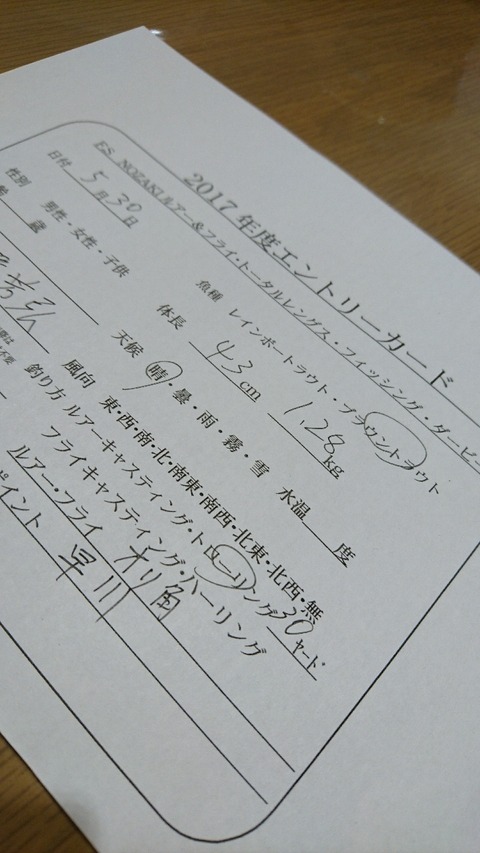 2017 年度エントリーカード
ES NOZAKIルアー&フライ・トータルレングス・フィッシング・ダービー
日付 5月30日 魚種 レインボートラウト・ブラウントラウト
性別 男性・女性・子供 体長 43cm 1.28kg
歳 天候 晴・曇・雨・霧・雪 水温 度
風向 東・西・南・北・南東・南西・北東・北西・無
釣り方 ルアーキャスティング・トローリング 30 ヤード
フライキャスティング・ハーリング
ルアー・フライ
ポイント 早川